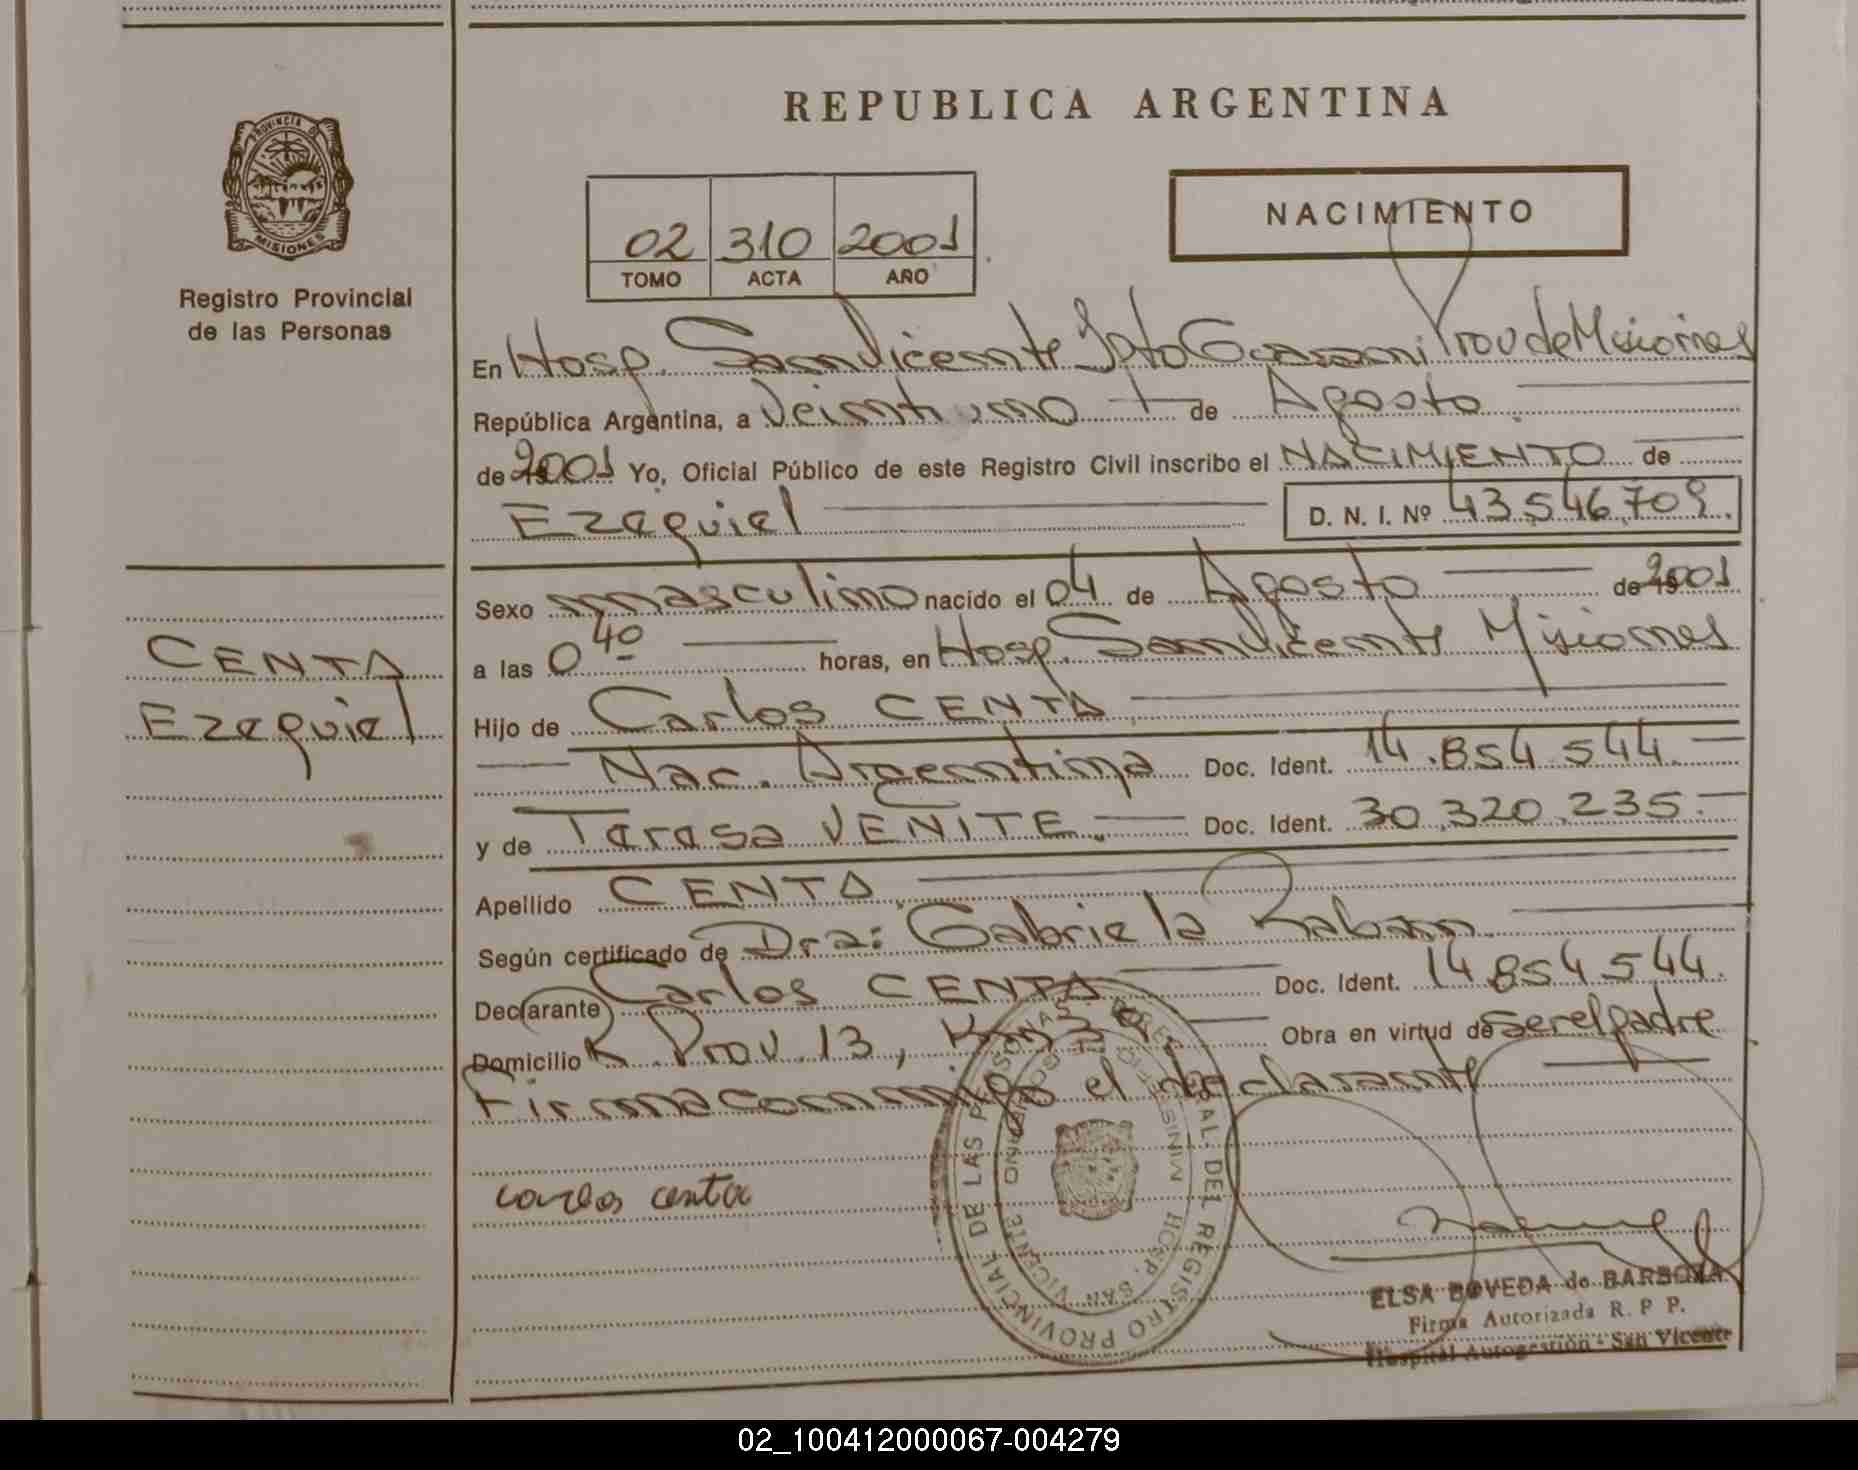 REPUBLICA ARGENTINA
PROVINCIA DE
MISIONES
Registro Provincial
de las Personas
02 310 2001
TOMO ACTA AÑO
NACIMIENTO
En Hosp. San Vicente Dpto Guarani Prov de Misiones
República Argentina, a Veintiuno de Agosto
de 2001 Yo, Oficial Público de este Registro Civil inscribo el NACIMIENTO de
Ezequiel D. N. I. Nº 43.546.709.
Sexo masculino nacido el 04 de Agosto de 2001
CENTA
Ezequiel
a las 0 40 horas, en Hosp. San Vicente Misiones
Hijo de Carlos CENTA
Nac. Argentina Doc. Ident. 14.854.544.
y de Teresa VENITE. Doc. Ident. 30.320.235.
Apellido CENTA
Según certificado de Dra: Gabriela
Declarante Carlos CENTA Doc. Ident. 14.854.544.
Domicilio Prov. 13, Km Obra en virtud de ser el padre
Firma conmigo el declarante
carlos centa
REGISTRO PROVINCIAL DE LAS PERSONAS
HOSP. SAN VICENTE
ELSA BOVEDA de BARBOZA
Firma Autorizada R. P P.
Hospital Autogestión - San Vicente
02_100412000067-004279